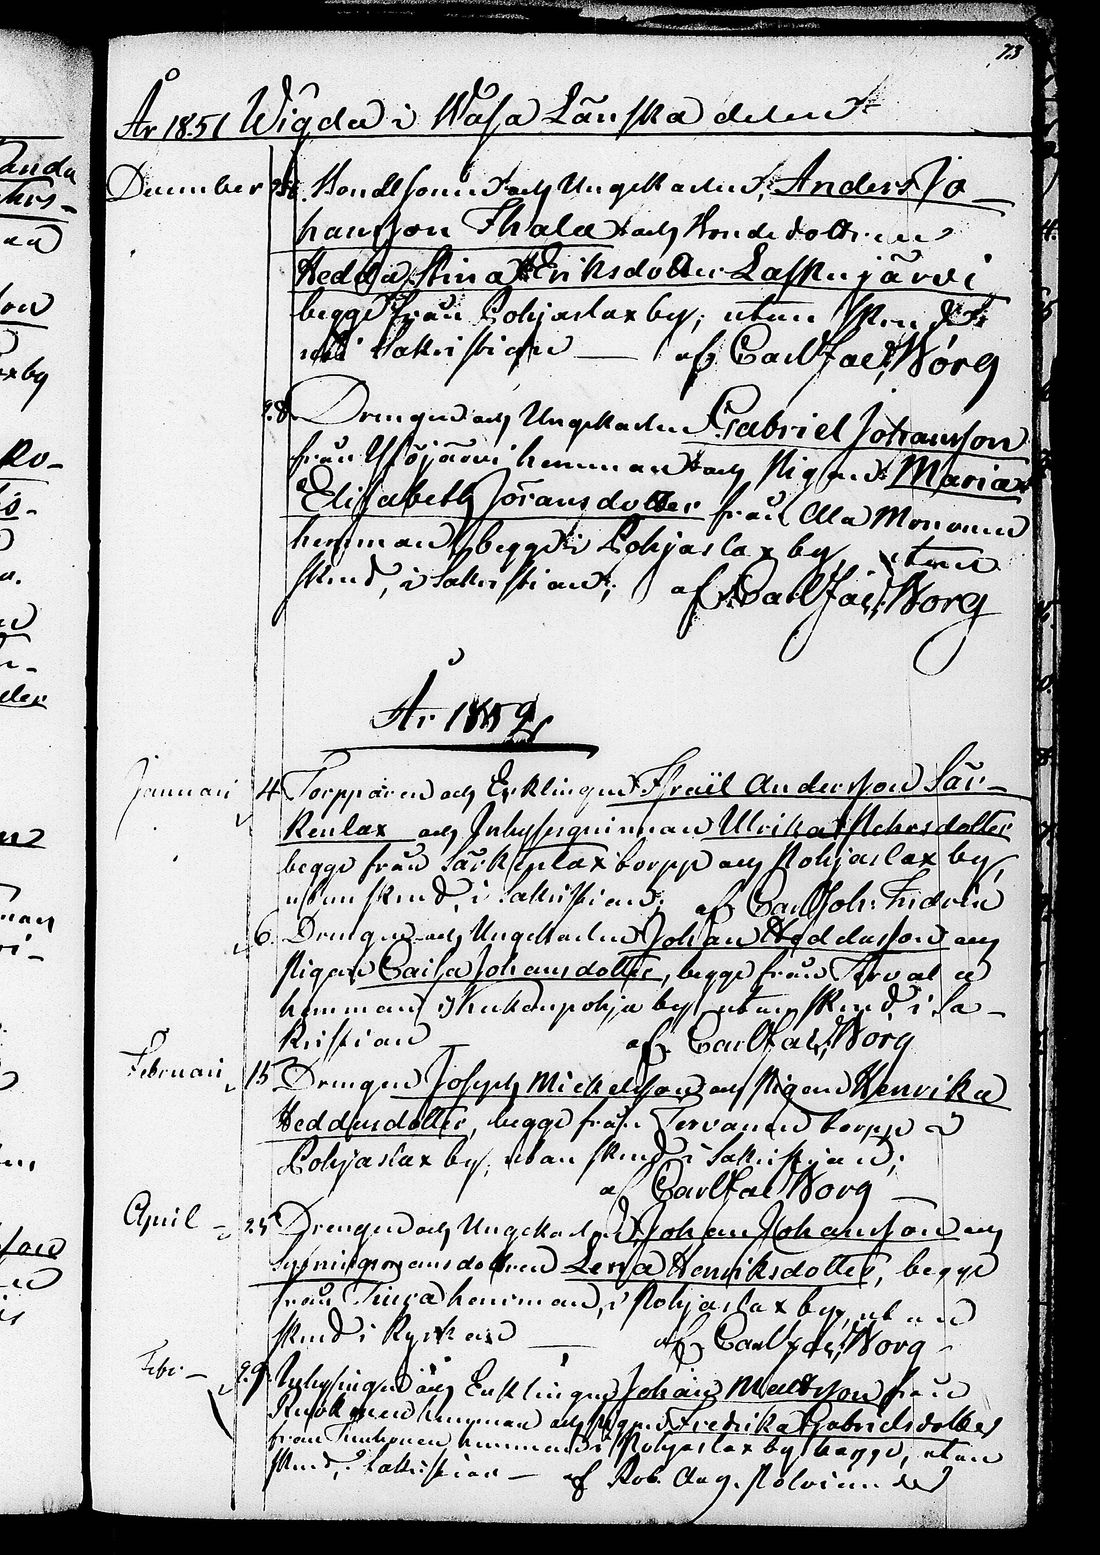 73
År 1851 Wigda i Wasa Länska delen
December 26. Bondesonen och Ungekarlen, Anders Jo-
hansson Ihala och Bonde dottren
Hedda Stina Eriksdotter Laskujärvi
begge från Pohjaslax by, utan
i Sakristian — af Carl Jac. Worg
28 Drengen och Ungekarlen Gabriel Johansson
från hemman och Pigan Maria
Elisabeth Jöransdotter från Ala
hemman begge i Pohjaslax by, utan
skrud, i Sakristian; af Carl Jac. Worg
År 1852
Januari 4 Torpparen och Enklingen Israël Andersson Sär-
kenlax och Inhysesqvinnan Ulrika Mehrsdotter
begge från Särkenlax torpp och Pohjaslax by,
utan skrud, i Sakristian; af Carl Joh. Fridrin
6. Drengen och Ungekarlen Johan Heddasson och
Pigan Caisa Johansdotter, begge från
hemman i by utan skrud i Sa-
kristian af Carl Jac. Worg
Februari 15 Drengen Joseph Mickelsson och Pigan Henrika
Heddasdotter, begge från Tervanen torpp
Pohjaslax by, utan skrud i Sakristian;
af Carl Jac Worg
April — 25 Drengen och Ungekarlen Johan Johansson och
Lena Henriksdotter, begge
från hemman, i Pohjaslax by, utan
skrud i Kyrkan — af Carl Jac. Worg
Febr — 29 Inhysingen och Enklingen Johan Mattsson från
hemman och Pigan Fredrika Gabrielsdotter
från hemman i Pohjaslax by begge, utan
skrud, i Sakristian — af Rob. Aug.